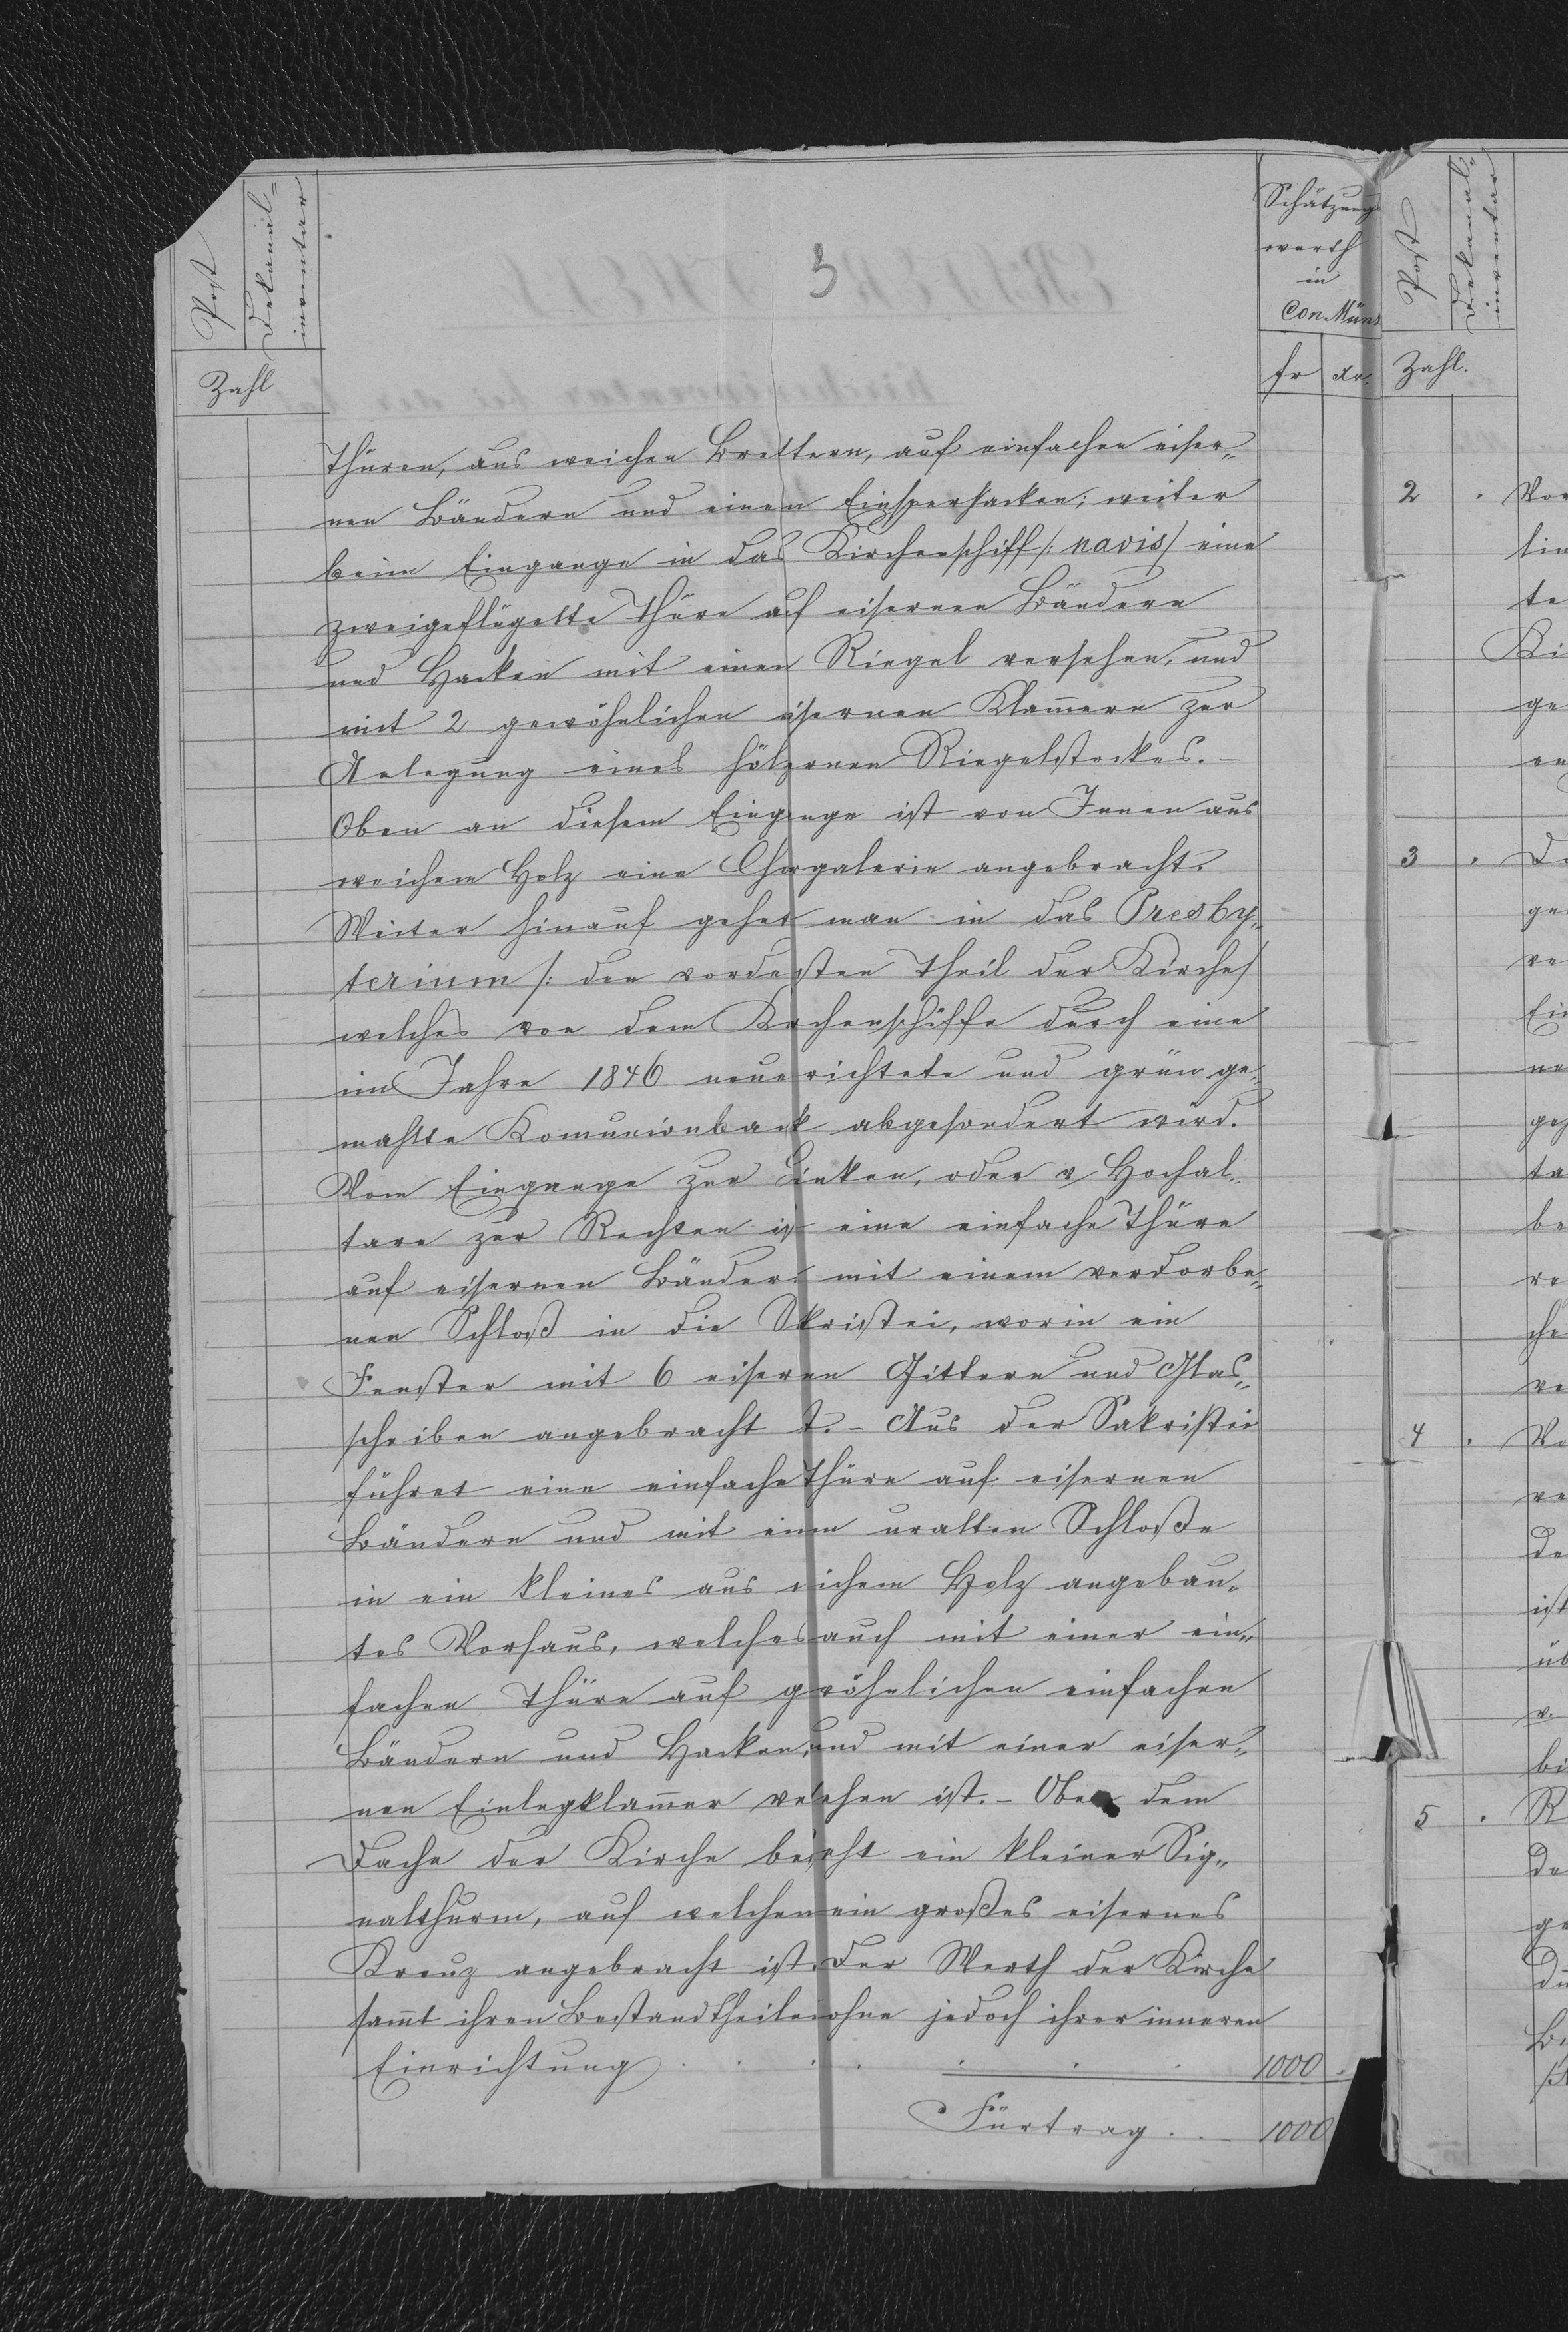 Post
Dekanal-
inventar
Zahl
3
Schätzung
werth
in
Con. Münz
fr
xr.
Thüren, aus weichen Brettern, auf einfachen eiser„
nen Bändern und einem Einsperhacken; weiter
beim Eingange in das Kirchenschiff /: navis/ eine
zweigeflügelte Thüre auf eisernen Bändern
und Hacken mit einen Riegel versehen, und
mit 2 gewöhnlichen eisernen Klammern zur
Anlegung eines hölzernen Riegelstockes. -
Oben an diesem Eingange ist von Innen aus
weichem Holz eine Chorgalerie angebracht.
Weiter hinauf gehet man in das Presby„
terium /: den vordersten Theil der Kirche/
welches von dem Kirchenschiffe durch eine
im Jahre 1846 neuerrichtete und grün ge„
mahlte Komunionbank abgesondert wird.
Vom Eingange zur Linken, oder v Hochal„
tare zur Rechten ist eine einfache Thüre
auf eisernen Bänder mit einem verdorbe„
nen Schloß in die Skristei, worin ein
Fenster mit 6 eisernen Gittern und Glas„
scheiben angebracht ist. - Aus der Sakristei
führet eine einfache Thüre auf eisernen
Bändern und mit einem uralten Schloße
in ein kleines aus weichem Holz angebau„
tes Vorhaus, welches auch mit einer ein„
fachen Thüre auf gewöhnlichen einfachen
Bändern und Hacken, und mit einer eiser„
nen Einlegklammer versehen ist. - Ober dem
Dache der Kirche besteht ein kleiner Sig„
nalthurm, auf welchen ein großes eisernes
Kreuz angebracht ist. Der Werth der Kirche
sammt ihren Bestandtheilen ohne jedoch ihrer inneren
Einrichtung . . . . . . . 1000 .
Fürtrag . . . 1000
Post
Dekanal-
inventar
Zahl.
2 .
3 .
4 .
5 .